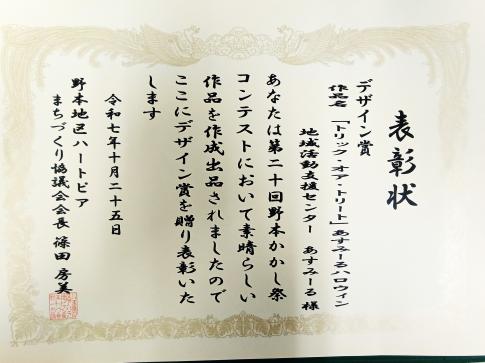 表彰状
デザイン賞
作品名 「トリック・オア・トリート」あすみーるハロウィン
地域活動支援センター あすみーる 様
あなたは第二十回野本かかし祭
コンテストにおいて素晴らしい
作品を作成出品されましたので
ここにデザイン賞を贈り表彰いた
します
令和七年十月二十五日
野本地区ハートピア
まちづくり協議会会長 篠田 房美